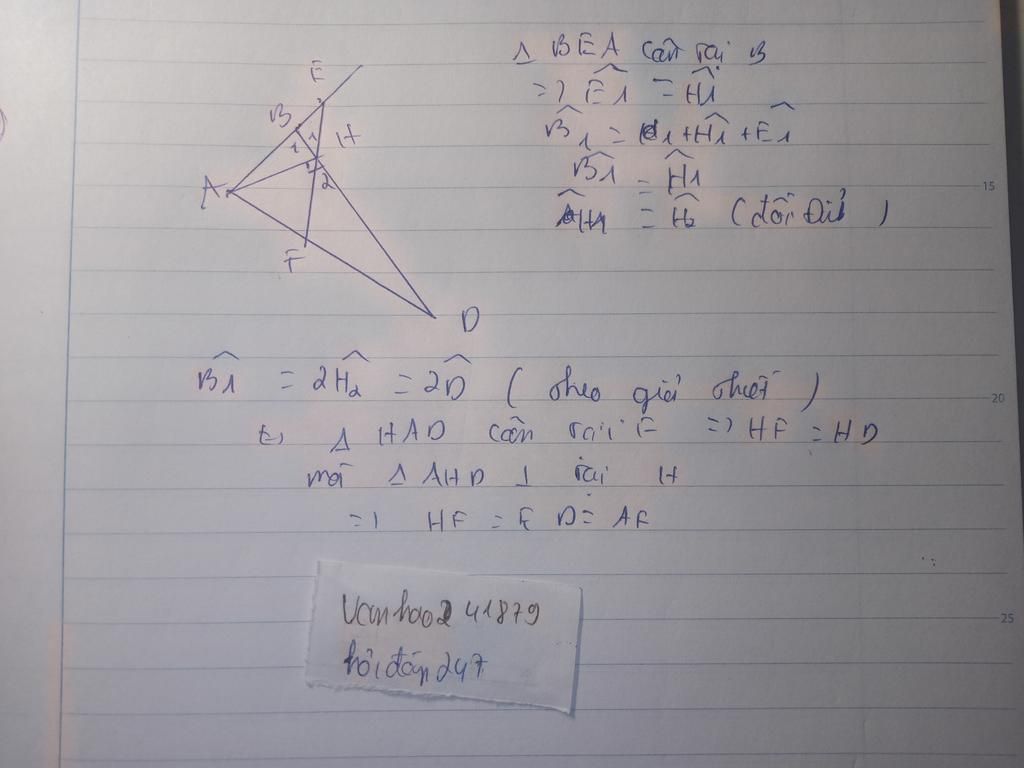 E
B
1
1
H
A
2
F
D
Δ BEA cân tại B
=> Ê1 = Ĥ1
B̂1 = +Ĥ1 +Ê1
B̂1 = Ĥ1
= Ĥ2 (đối đỉnh)
15
B̂1 = 2Ĥ2 = 2D̂ (theo giả thiết)
20
Δ HAD cân tại F => HF = HD
mà Δ AHD ⊥ tại H
=> HF = F D = AF
Vanhao241879
25
hỏi đáp 247